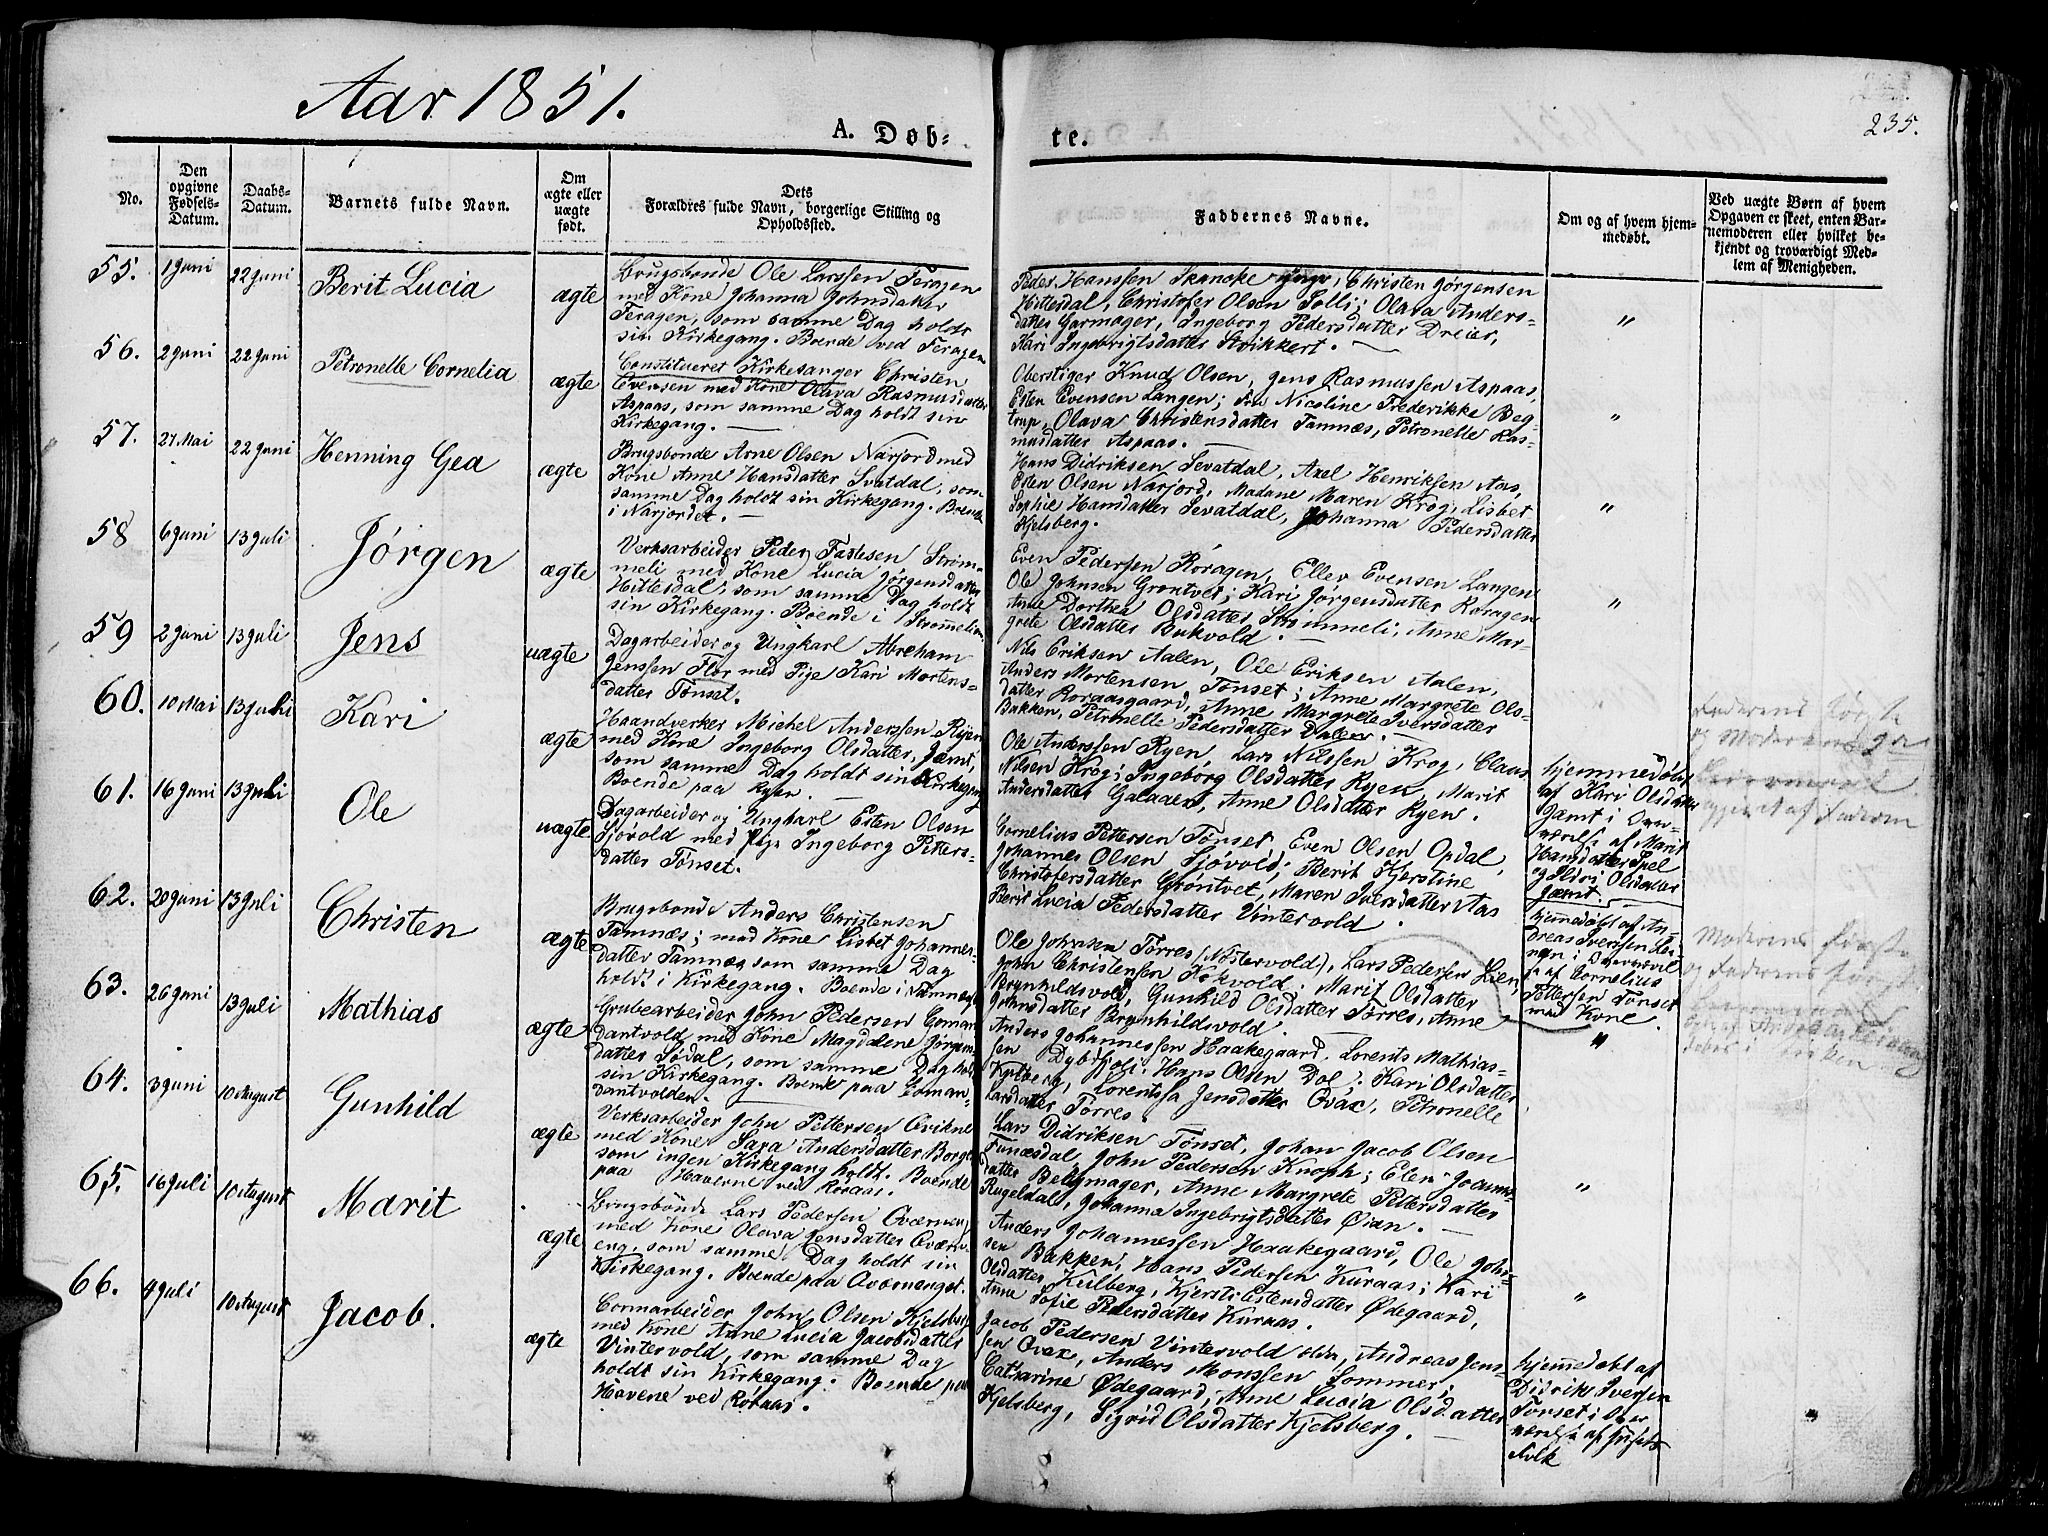 Aar 1851.
A. Døb-
te.
235.
No.
Den opgivne Fødsels-Datum.
Daabs-Datum.
Barnets fulde Navn.
Om ægte eller uægte født.
Dets
Forældres fulde Navn, borgerlige Stilling og
Opholdssted.
Faddernes Navne.
Om og af hvem hjem-
medøbt.
Ved uægte Børn af hvem
Opgaven er skeet, enten Bar-
nemoderen eller hvilket be-
kjendt og troværdigt Med-
lem af Menigheden.
55. 1 Juni 22 Juni Berit Lucia ægte
Brugsbonde Ole Larssen Feragen
med Kone Johanna Johnsdatter
Feragen, som samme Dag holdt
sin Kirkegang. Boende ved Feragen
Peder Hanssen Skancke yngr, Christen Jørgensen
Hittesdal, Christofer Olsen Solli; Olava Anders-
datter Garmager, Ingeborg Pedersdatter Dreier,
Kari Ingebrigtsdatter Strikkert.
"
56. 2 Juni 22 Juni Petronelle Cornelia ægte
Constitueret Kirkesanger Christen
Evensen med Kone Olava Rasmusdatter
Aspaas, som samme Dag holdt sin
Kirkegang.
Oberstiger Knud Olsen, Jens Rasmussen Aspaas,
Esten Evensen Langen; Fru Nicoline Frederikke Beg-
trup, Olava Christensdatter Tamnæs, Petronelle Ras-
musdatter Aspaas.
"
57. 27 Mai 22 Juni Henning Gea ægte
Brugsbonde Arne Olsen Narjord med
Kone Anne Hansdatter Svatdal, som
samme Dag holdt sin Kirkegang. Boende
i Narjordet.
Hans Didriksen Sevatdal, Axel Henriksen Aas,
Esten Olsen Narjord, Madane Maren Krog, Lisbet
Sophie Hansdatter Sevatdal, Johanna Pedersdatter
Kjelsberg.
"
58 6 Juni 13 Juli Jørgen ægte
Verksarbeider Peder Fastesen Strøm-
meli med Kone Lucia Jørgensdatter
Hittesdal, som samme Dag holdt
sin Kirkegang. Boende i Strømmelien
Even Pedersen Røragen, Ellev Evensen Langen
Ole Johnsen Grøntvet; Kari Jørgensdatter Røragen
Anne Dorthea Olsdatter Strømmeli, Anne Mar-
grete Olsdatter Bukvold.
"
59 2 Juni 13 Juli Jens uægte
Dagarbeider og Ungkarl Abreham
Jenssen Flor med Pige Kari Mortens-
datter Tønset.
Nils Eriksen Aalen, Ole Eriksen Aalen,
Anders Mortensen Tønset; Anne Margrete Ols-
datter Roraasgaard, Anne Margrete Iversdatter
Bakken, Petronelle Pedersdatter Dalen.
60. 10 Mai 13 Juli Kari ægte
Haandverker Michel Anderssen Ryen
med Kone Ingeborg Olsdatter Jæmt,
som samme Dag holdt sin Kirkegang
Boende paa Ryen
Ole Anderssen Ryen, Lars Nilssen Krog, Claus
Nilsen Krog; Ingeborg Olsdatter Ryen, Marit
Andersdatter Galaaen, Anne Olsdatter Ryen.
hjemmedøbt
af Kari Olsdatter
Jæmt i Over-
værelse af Marit
Hansdatter Spel
og Ildri Olsdatter
Jæmt.
61. 16 Juni 13 Juli Ole uægte
Dagarbeider og Ungkarl Esten Olsen
Sjøvold med Pige Ingeborg Petters-
datter Tønset.
Cornelius Pettersen Tønset, Even Olsen Opdal,
Johannes Olsen Sjøvold; Berit Kjerstine
Christofersdatter Grøntvet, Maren Iversdatter Aas
Berit Lucia Pedersdatter Vintervold.
hjemmedøbt af An-
dreas Iversen Lei-
gen i Overværel-
se af Cornelius
Pettersen Tønset
med Kone.
62. 20 Juni 13 Juli Christen ægte
Brugsbonde Anders Christensen
Tamnæs; med Kone Lisbet Johannes-
datter Tamnæs som samme Dag
holdt i Kirkegang. Boende i Tamnæs
Ole Johnsen Tørres (Nostervold), Lars Pedersen Lien
John Christensen Kokvold; Marit Olsdatter
Brynhildsvold, Gunhild Olsdatter Tørres, Anne
Johnsdatter Brynhildsvold.
"
63. 26 Juni 13 Juli Mathias ægte
Grubearbeider John Pedersen Coman-
dantvold med Kone Magdalene Jørgens-
datter Sødal, som samme Dag holdt
sin Kirkegang. Boende paa Coman-
dantvolden.
Anders Johannessen Haakegaard, Lorents Mathias-
sen Dybdsoli; Hans Olsen Dol; Kari Olsdatter
Kulberg, Lorentssa Jensdatter Ovax, Petronelle
Larsdatter Tørres
64. 3 Juni 10 August Gunhild ægte
Verksarbeider John Pettersen Qvikne
med Kone Sara Andersdatter Borgos
som ingen Kirkegang holdt. Boende
paa Haverne ved Röraas.
Lars Didriksen Tønset, Johan Jacob Olsen
Funæsdal, John Pedersen Knoph; Elen Joenns-
datter Beltgmager, Anne Margrete Pettersdatter
Rugeldal, Johanna Ingebrigtsdatter Øian.
"
65. 16 Juli 10 August Marit ægte
Brugsbonde Lars Pedersen Qværnen
med Kone Olava Jensdatter Qværn-
eng, som samme Dag holdt sin
Kirkegang. Boende paa Qværnenget.
Anders Johannessen Haakegaard, Ole John-
sen Bakken, Hans Pedersen Kuraas; Kari
Olsdatter Keilberg, Kjersti Estensdatter Ødegaard,
Anne Sofie Pedersdatter Kuraas.
"
66. 4 Juli 10 August Jacob. ægte
Cornarbeider John Olsen Kjelsberg
med Kone Anne Lucia Jacobsdatter
Vintervold, som samme Dag
holdt sin Kirkegang. Boende paa
Havene ved Röraas.
Jacob Pedersen Vintervold ældr, Andreas Jens-
sen Qvax, Anders Monssen Sommer;
Catharine Ødegaard, Anne Lucia Olsdatter
Kjelsberg, Sigrid Olsdatter Kjelsberg.
hjemmedøbt af
Didrik Iversen
Tønset i Over
værelse af Huset
Folk
Faderens første
Moderens første